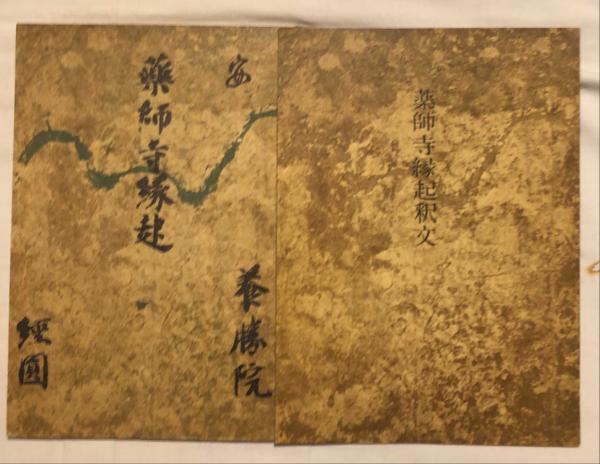 薬師寺縁起釈文
安
養勝院
藥師寺縁起
經圓